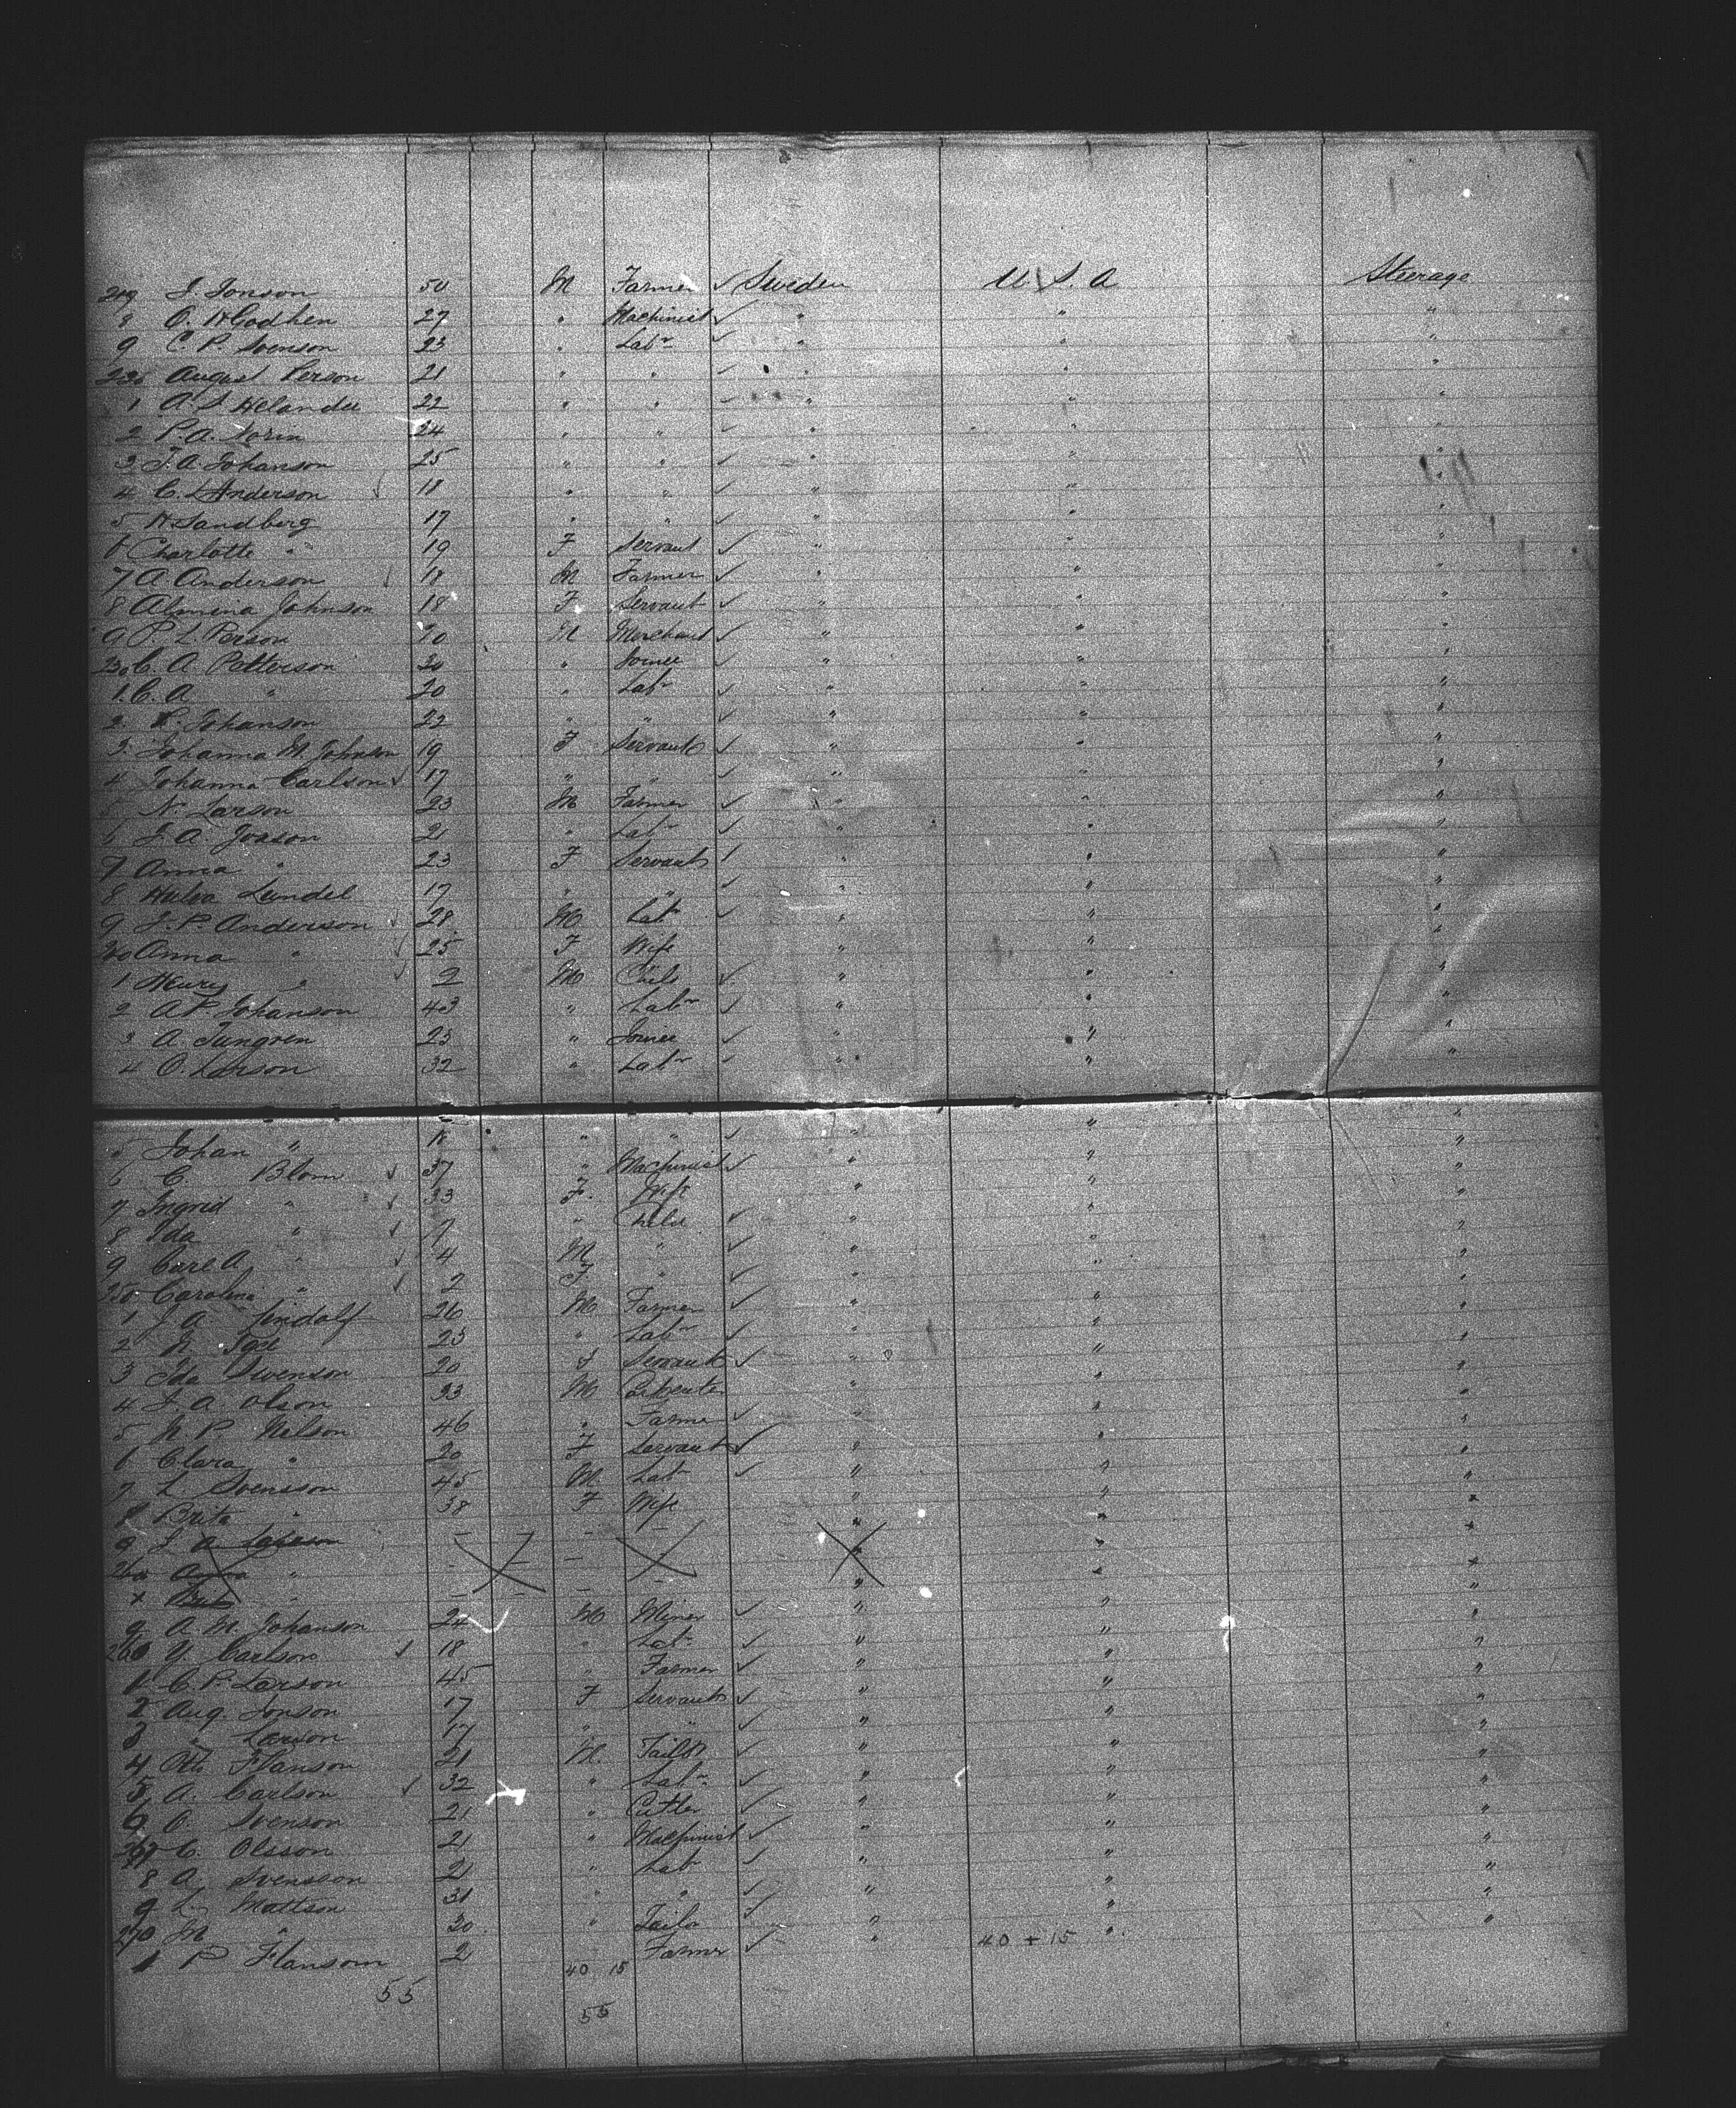 219 J. Jonson 50 M Farmer ✓ Sweden U. S. A Steerage
8 O. H Godhen 27 " Machinist ✓ " " "
9 C. P. Svenson 23 " Labr ✓ " " "
August Person 21 " " ✓ " " "
1 A. S. Helander 22 " " ✓ " " "
2 P. A. 24 " " ✓ " " "
3 J. A. Johanson 25 " " ✓ " " "
4 C. Anderson ✓ 18 " " ✓ " " "
5 H Sandberg 17 " " ✓ " " "
6 Charlotte " 19 F Servant ✓ " " "
7 A Anderson ✓ 18 M Farmer ✓ " " "
8 Almina Johnson 18 F Servant ✓ " " "
9 P. L. Person 20 M Merchant ✓ " " "
230 C. A Petterson " ✓ " " "
1. C. A " 20 " Labr ✓ " " "
2 Johanson 22 " " ✓ " " "
3. Johanna M Johnson 19 F Servants ✓ " " "
4 Johanna Carlson ✓ 17 " " ✓ " " "
5 N. Larson 23 M Farmer ✓ " " "
6 J. A. 21 " Labr ✓ " " "
7 Anna " 23 F Servants ✓ " " "
8 Lundel 17 " " ✓ " " "
9 J. P. Anderson ✓ 28 M Labr ✓ " " "
240 Anna " ✓ 25 F Wife " " "
1 Henry " ✓ 2 M Child ✓ " " "
2 A P Johanson 43 " Labr ✓ " " "
3 A. 23 " ✓ " " "
4 O. Larson 32 " Labr ✓ " " "
5 Johan " " " ✓ " " "
6 C. Blom ✓ 37 " Machinist ✓ " " "
7 Ingrid " ✓ 33 F. Wife " " "
8 Ida " ✓ 7 " Child ✓ " " "
9 Carl A " ✓ 4 M " ✓ " " "
250 Carolina " ✓ 2 F " ✓ " " "
1 J A Lindalf 26 M Farmer ✓ " " "
2 23 " Labr ✓ " " "
3 Ida Swenson 20 F Servants ✓ " " "
4 J A Olson 33 M " " "
5 N P Nilson 46 " Farmer ✓ " " "
6 Clara " 20 F Servants ✓ " " "
7 L. Svensson 45 M. Labr ✓ " " "
8 Brita " 38 F Wife " " "
9 J A – – – " " "
Anna " – – – " " "
" – – – " " "
9 A. M. Johanson 24 M Miner ✓ " " "
260 Carlson ✓ 18 " Labr ✓ " " "
1 C. P. Larson 45 " Farmer ✓ " " "
2 Aug. Jonson 17 F Servants ✓ " " "
3 " Larson 17 " " ✓ " " "
4 Hanson 21 M. Tailor ✓ " " "
5 A. Carlson ✓ 32 " Labr ✓ " " "
6 O. Svenson 21 " Cutler ✓ " " "
267 C. Olsson 21 " Machinist ✓ " " "
8 A. Svensson 21 " Labr ✓ " " "
9 L. Mattson 31 " " ✓ " " "
270 M " 30 " Tailor ✓ " " "
1 P Hansom 2 Farmer ✓ 40 + 15
55 40 15
55